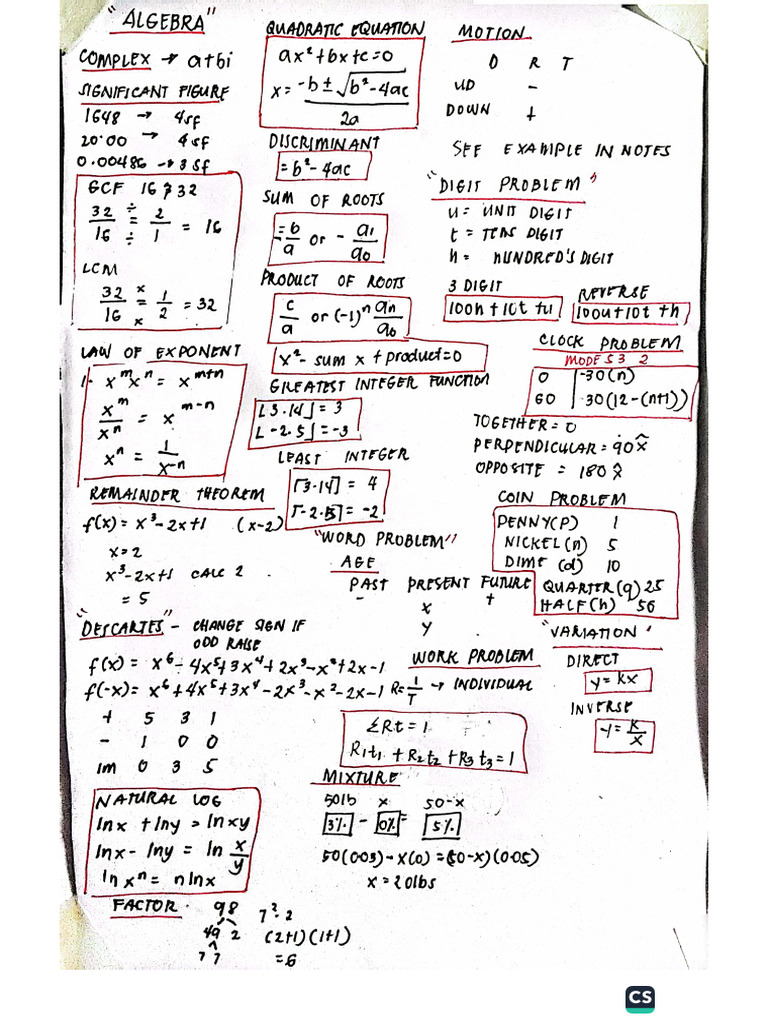 "ALGEBRA"
COMPLEX → a+bi
SIGNIFICANT FIGURE
1648 → 4sf
20.00 → 4sf
0.00486 → 3sf
GCF 16 & 32
32 ÷ 2
— = — = 16
16 ÷ 1
LCM
32 x 1
— = — = 32
16 x 2
LAW OF EXPONENT
1. x^m x^n = x^m+n
x^m/x^n = x^m-n
x^n = 1/x^-n
REMAINDER THEOREM
f(x) = x³-2x+1 (x-2)
x=2
x³-2x+1 CALC 2
= 5
"DESCARTES" - CHANGE SIGN IF
ODD RAISE
f(x) = x⁶-4x⁵+3x⁴+2x³-x²+2x-1
f(-x) = x⁶+4x⁵+3x⁴-2x³-x²-2x-1
+ 5 3 1
- 1 0 0
im 0 3 5
NATURAL LOG
lnx + lny = lnxy
lnx - lny = ln x/y
ln x^n = n lnx
FACTOR
98 7².2
49 2 (2+1)(1+1)
7 7 =6
QUADRATIC EQUATION
ax²+bx+c=0
x = -b ± √b²-4ac
2a
DISCRIMINANT
= b²-4ac
SUM OF ROOTS
= -b/a or - a₁/a₀
PRODUCT OF ROOTS
c/a or (-1)^n an/a₀
x² - sum x + product = 0
GREATEST INTEGER FUNCTION
⌊3.14⌋ = 3
⌊-2.5⌋ = -3
LEAST INTEGER
⌈3.14⌉ = 4
⌈-2.5⌉ = -2
"WORD PROBLEM"
AGE
PAST PRESENT FUTURE
- x +
y
WORK PROBLEM
R = 1/T → INDIVIDUAL
ΣRt = 1
R₁t₁ + R₂t₂ + R₃t₃ = 1
MIXTURE
50lb x 50-x
3% - 0% = 5%
50(0.03) - x(0) = (50-x)(0.05)
x = 20lbs
MOTION
D R T
UP -
DOWN +
SEE EXAMPLE IN NOTES
"DIGIT PROBLEM"
u = UNIT DIGIT
t = TENS DIGIT
h = HUNDRED'S DIGIT
3 DIGIT REVERSE
100h + 10t + u 100u + 10t + h
CLOCK PROBLEM
MODE 5 3 2
0 -30(n)
60 30(12-(n+1))
TOGETHER = 0
PERPENDICULAR = 90 x̂
OPPOSITE = 180 x̂
COIN PROBLEM
PENNY(P) 1
NICKEL(n) 5
DIME (d) 10
QUARTER(q) 25
HALF(h) 50
"VARIATION"
DIRECT
y = kx
INVERSE
y = k/x
CS